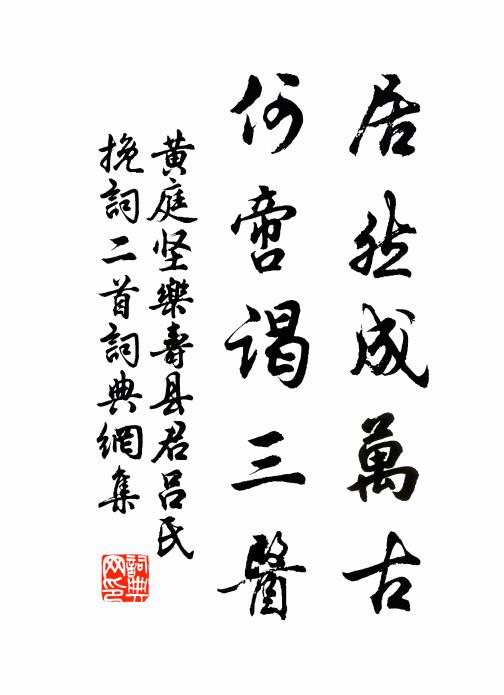 居然成萬古
何啻謁三醫
黄庭坚樂壽县君呂氏
挽詞二首詞典網集
詞典網印